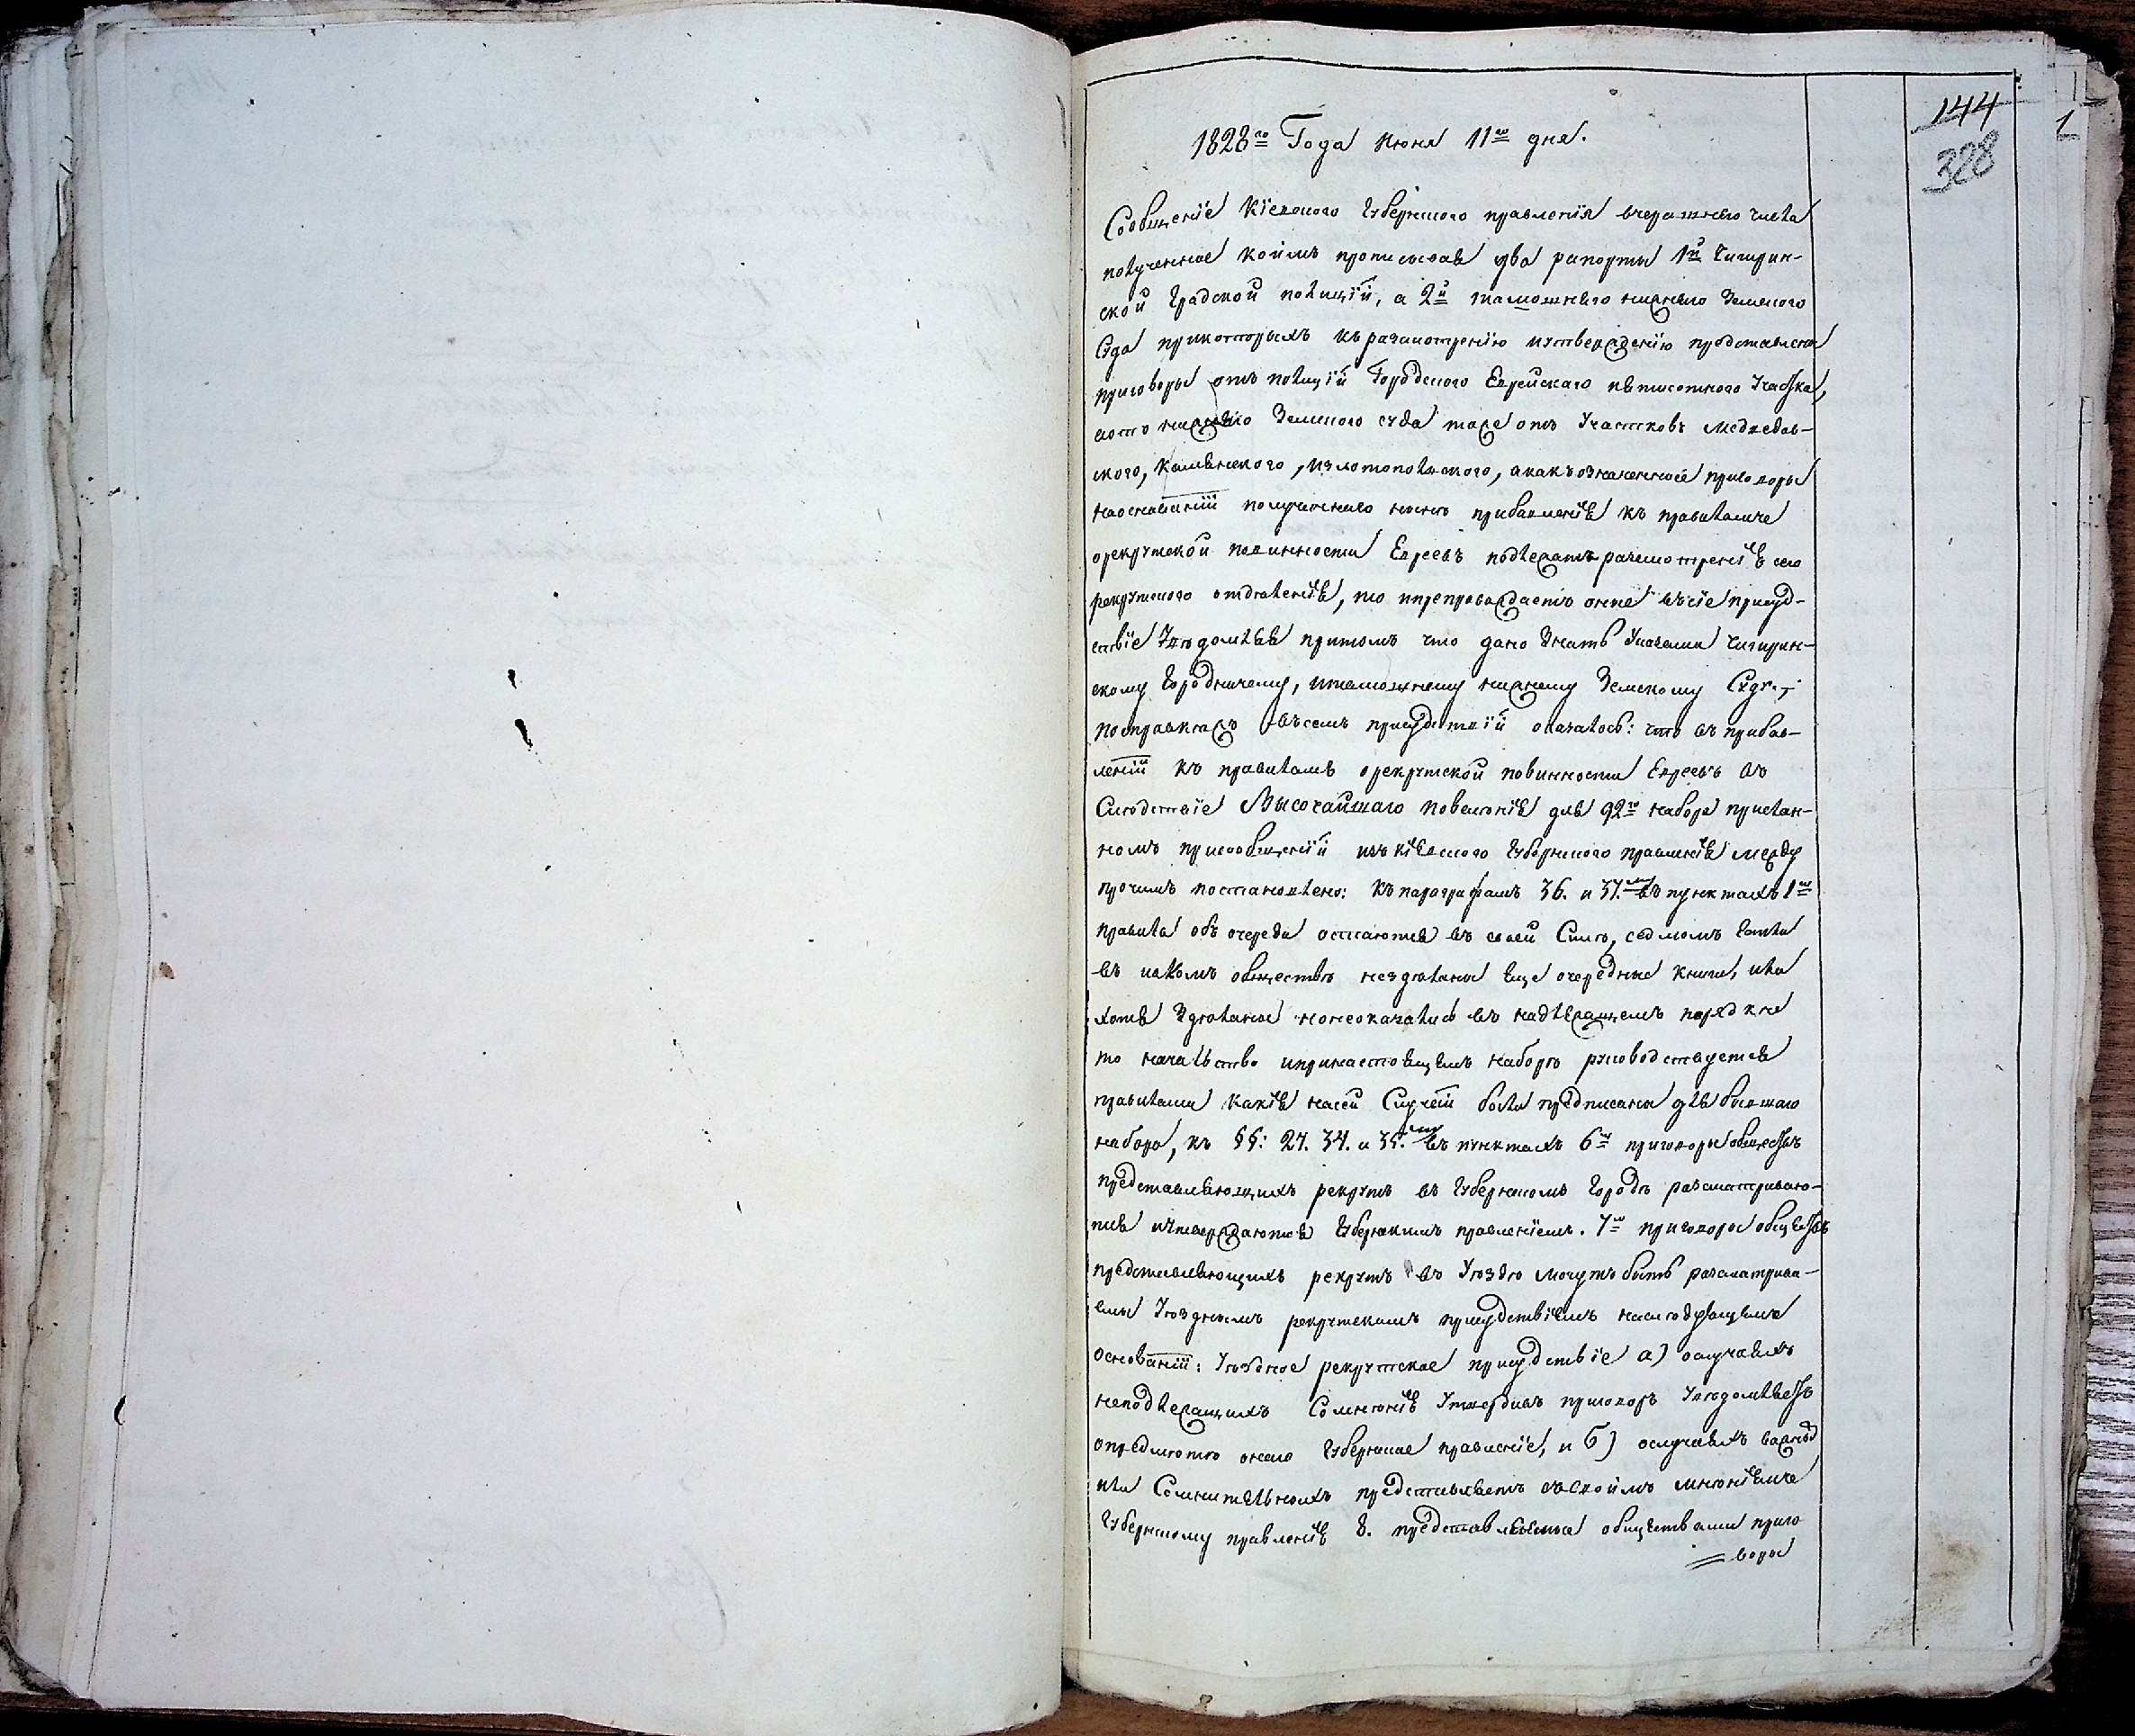 144
1
328
1828го Года июня 11го дня.
Сообщеніе Кіевского Губернского правленія вчерашнего числа
полученное коимъ прописывая два рапорты 1й Чигирин-
ской Градской полиціи, а 2й тамошнего нижнего Земского
Суда прикоторыхъ къ разсмотренію иутвержденію представлены
приговоры отъ полиціи Городского Еврейскаго пятисотного Участка,
аотъ нижнего Земского суда тоже отъ Участковъ Медведов-
ского, Каменского, излотопольского, акакъ означенные приговоры
наоснованіи полученного прибавленія къ правиламъ
орекрутской повинности Евреевъ подлежатъ разсмотренію сего
рекрутского отделенія, то ипрепровождаетъ оные въсіе присуд-
ствіе Уведомляя притомъ что дано Знать Указами Чигирин-
скому Городничему, итамошнему нижнему Земскому Суду.,
посправкахъ въсемъ присудствіи оказалось: что въ прибав-
леніи къ правиламъ орекрутской повинности Евреевъ въ
Следствіе Высочайшаго повеленія для 92го набора прислан-
номъ присообщеніи изъ Кіевского Губернского правленія между
прочимъ постановлено: Къ параграфамъ 36. и 37.му въ пунктахъ 1е
правила объ очереди остаются въ своей Силе, седмомъ Если
въ какомъ обществе нездѣланы Еще очередные книги, или
хотя Зделаные нонеоказались въ надлежащемъ порядке
то начальство инринастоящемъ наборе руководствуется
правилами какія насей Случай были предписаны для бывшаго
набора, къ §§: 27. 34. и 35.му въ пунктахъ 6е приговоры обществъ
представляющихъ рекрутъ въ Губернскомъ Городе разсматриваю-
тся иутверждаются Губернскимъ правленіемъ. 7е приговоры обществъ
представляющихъ рекрутъ въ Уезде могутъ быть разсматрива-
емы Уезднымъ рекрутскимъ присудствіемъ наследующемъ
основаніи: Уездное рекрутское присудствіе а) ослучаяхъ
неподлежащихъ Сомненію Утвердивъ приговоръ Уведомляетъ
опредметѣ онаго Губернское правленіе, и б) ослучаяхъ
или Сомнительныхъ представляетъ съсвоимъ мненіемъ
Губернскому правленію 8. представляемые обществами приго
воры